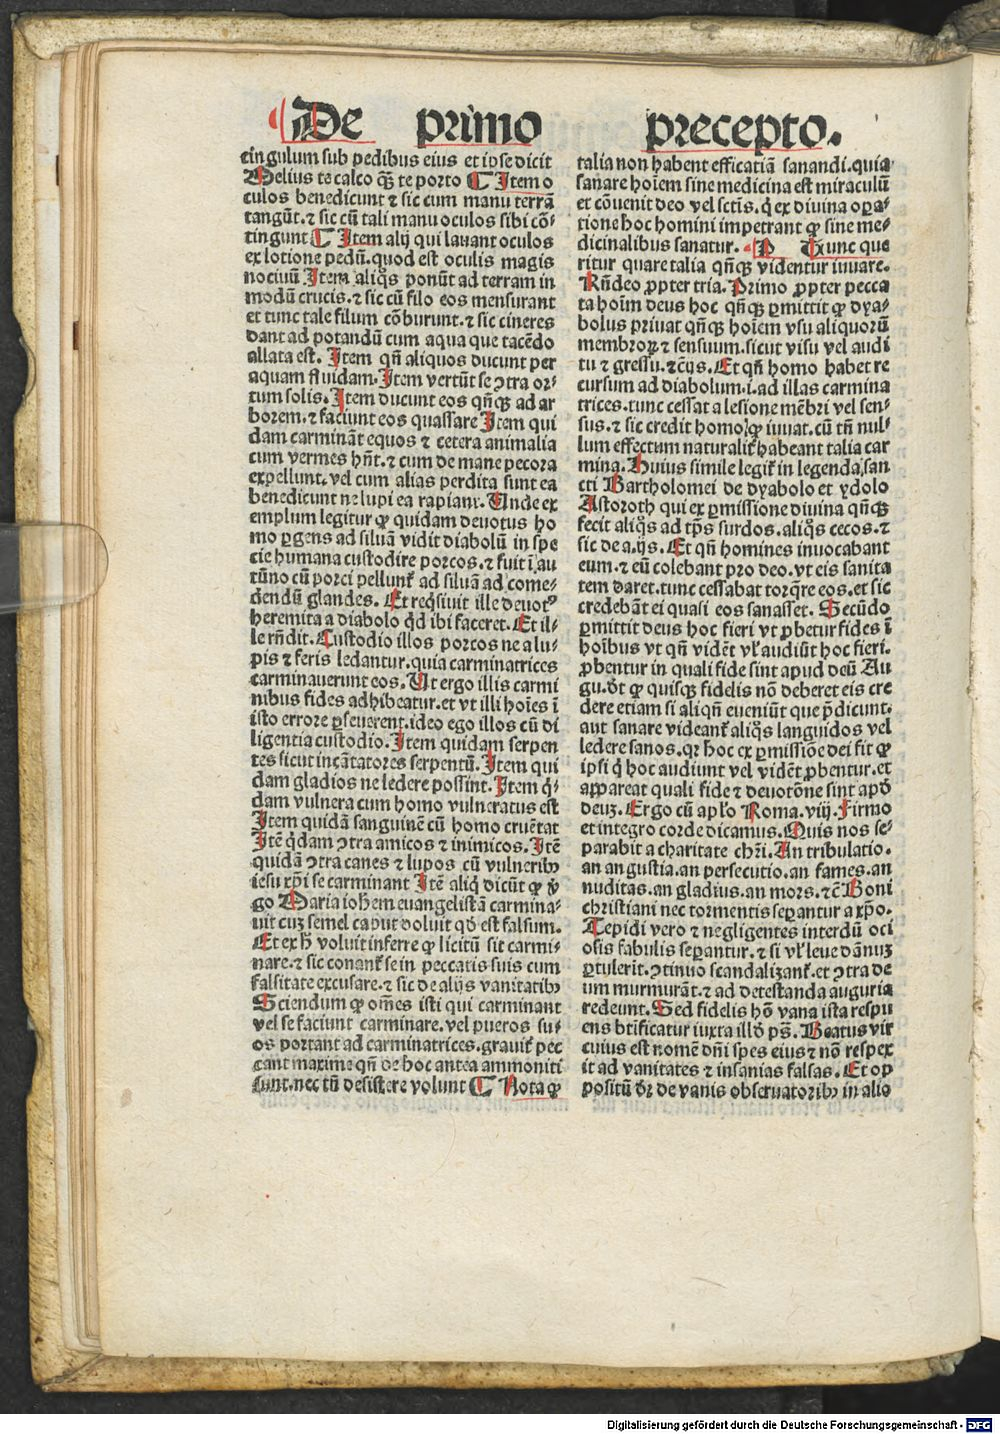 De primo precepto.
cingulum sub pedibus eius et ipse dicit
Melius te calco qꝫ te porto ¶ Item o
culos benedicunt ⁊ sic cum manu terrā
tangūt. ⁊ sic cū tali manu oculos sibi cō-
tingunt ¶ Item alij qui lauant oculos
ex lotione pedū. quod est oculis magis
nociuū Item aliqs ponūt ad terram in
modū crucis. ⁊ sic cū filo eos mensurant
et tunc tale filum cōburunt. ⁊ sic cineres
dant ad potandū cum aqua que tacēdo
allata est. Item qn̄ aliquos ducunt per
aquam fluidam. Item vertūt se ꝯtra or-
tum solis. Item ducunt eos qn̄qꝫ ad ar
borem. ⁊ faciunt eos quassare Item qui
dam carmināt equos ⁊ cetera animalia
cum vermes hn̄t. ⁊ cum de mane pecora
expellunt. vel cum alias perdita sunt ea
benedicunt ne lupi ea rapiant. Unde ex
emplum legitur ꝙ quidam deuotus ho
mo ꝑgens ad siluā vidit diabolū in spe
cie humana custodire porcos. ⁊ fuit ī au
tūno cū porci pellunt᷑ ad siluā ad come-
dendū glandes. Et reqsiuit ille deuotꝰ
heremita a diabolo qd ibi faceret. Et il-
le rn̄dit. Custodio illos porcos ne a lu-
pis ⁊ feris ledantur. quia carminatrices
carminauerunt eos. Ut ergo illis carmi
nibus fides adhibeatur. et vt illi hoīes ī
isto errore ꝑseuerent. ideo ego illos cū di
ligentia custodio. Item quidam serpen
tes sicut incātatores serpentū. Item qui
dam gladios ne ledere possint. Item q-
dam vulnera cum homo vulneratus est
Item quidā sanguinē cū homo cruētat
Itē qdam ꝯtra amicos ⁊ inimicos. Itē
quidā ꝯtra canes ⁊ lupos cū vulneribꝫ
iesu xp̄i se carminant Itē aliq dicūt ꝙ v̄
go Maria iohem euangelistā carmina-
uit cuꝫ semel caput doluit qd est falsum.
Et ex h̄ voluit inferre ꝙ licitū sit carmi-
nare. ⁊ sic conant᷑ se in peccatis suis cum
falsitate excusare. ⁊ sic de alijs vanitatibꝫ
Sciendum ꝙ om̄es isti qui carminant
vel se faciunt carminare. vel pueros su-
os portant ad carminatrices. grauit᷑ pec
cant maxime qn̄ de hoc antea ammoniti
sunt. nec tn̄ desistere volunt ¶ Nota ꝙ
talia non habent efficatiā sanandi. quia
sanare hoīem sine medicina est miraculū
et cōuenit deo vel sctīs. q ex diuina oꝑa-
tione hoc homini impetrant ꝙ sine me-
dicinalibus sanatur. Tunc que
ritur quare talia qn̄qꝫ videntur iuuare.
Rn̄deo ꝓpter tria. Primo ꝓpter pecca
ta hoīm deus hoc qn̄qꝫ ꝑmittit ꝙ dya-
bolus priuat qn̄qꝫ hoīem vsu aliquorū
membroꝝ ⁊ sensuum. sicut visu vel audi
tu ⁊ gressu. ⁊cīs. Et qn̄ homo habet re
cursum ad diabolum. i. ad illas carmina
trices. tunc cessat a lesione mēbri vel sen-
sus. ⁊ sic credit homo ꝙ iuuat. cū tn̄ nul-
lum effectum naturalit᷑ habeant talia car
mina. Huius simile legit᷑ in legenda san
cti Bartholomei de dyabolo et ydolo
Astoroth qui ex ꝑmissione diuina qn̄qꝫ
fecit aliqs ad tp̄s surdos. aliqs cecos. ⁊
sic de a. ijs. Et qn̄ homines inuocabant
eum. ⁊ eū colebant pro deo. vt eis sanita
tem daret. tunc cessabat torqre eos. et sic
credebāt ei quasi eos sanasset. Secūdo
ꝑmittit deus hoc fieri vt ꝓbetur fides ī
hoībus vt qn̄ vidēt vl audiūt hoc fieri.
ꝓbentur in quali fide sint apud deū Au
gu. dt ꝙ quisqꝫ fidelis nō deberet eis cre
dere etiam si aliqn̄ eueniūt que p̄dicunt.
aut sanare videant᷑ aliqs languidos vel
ledere sanos. qꝛ hoc ex ꝑmissiōe dei fit ꝙ
ipsi q hoc audiunt vel vidēt ꝓbentur. et
appareat quali fide ⁊ deuotōne sint apd
deuꝫ. Ergo cū aplo Roma. viij. Firmo
et integro corde dicamus. Quis nos se-
parabit a charitate chri. An tribulatio.
an angustia. an persecutio. an fames. an
nuditas. an gladius. an mors. ⁊c̄ Boni
christiani nec tormentis seꝑantur a xp̄o.
Tepidi vero ⁊ negligentes interdū oci
osis fabulis seꝑantur. ⁊ si vl leue dānuꝫ
ꝑtulerit. ꝯtinuo scandalizant᷑. et ꝯtra de
um murmurāt. ⁊ ad detestanda auguria
redeunt. Sed fidelis hō vana ista respu
ens btīficatur iuxta illd ps̄. Beatus vir
cuius est nomē dn̄i spes eius ⁊ nō respex
it ad vanitates ⁊ insanias falsas. Et op
positū dꝛ de vanis obseruatoribꝫ in alio
Digitalisierung gefördert durch die Deutsche Forschungsgemeinschaft - DFG